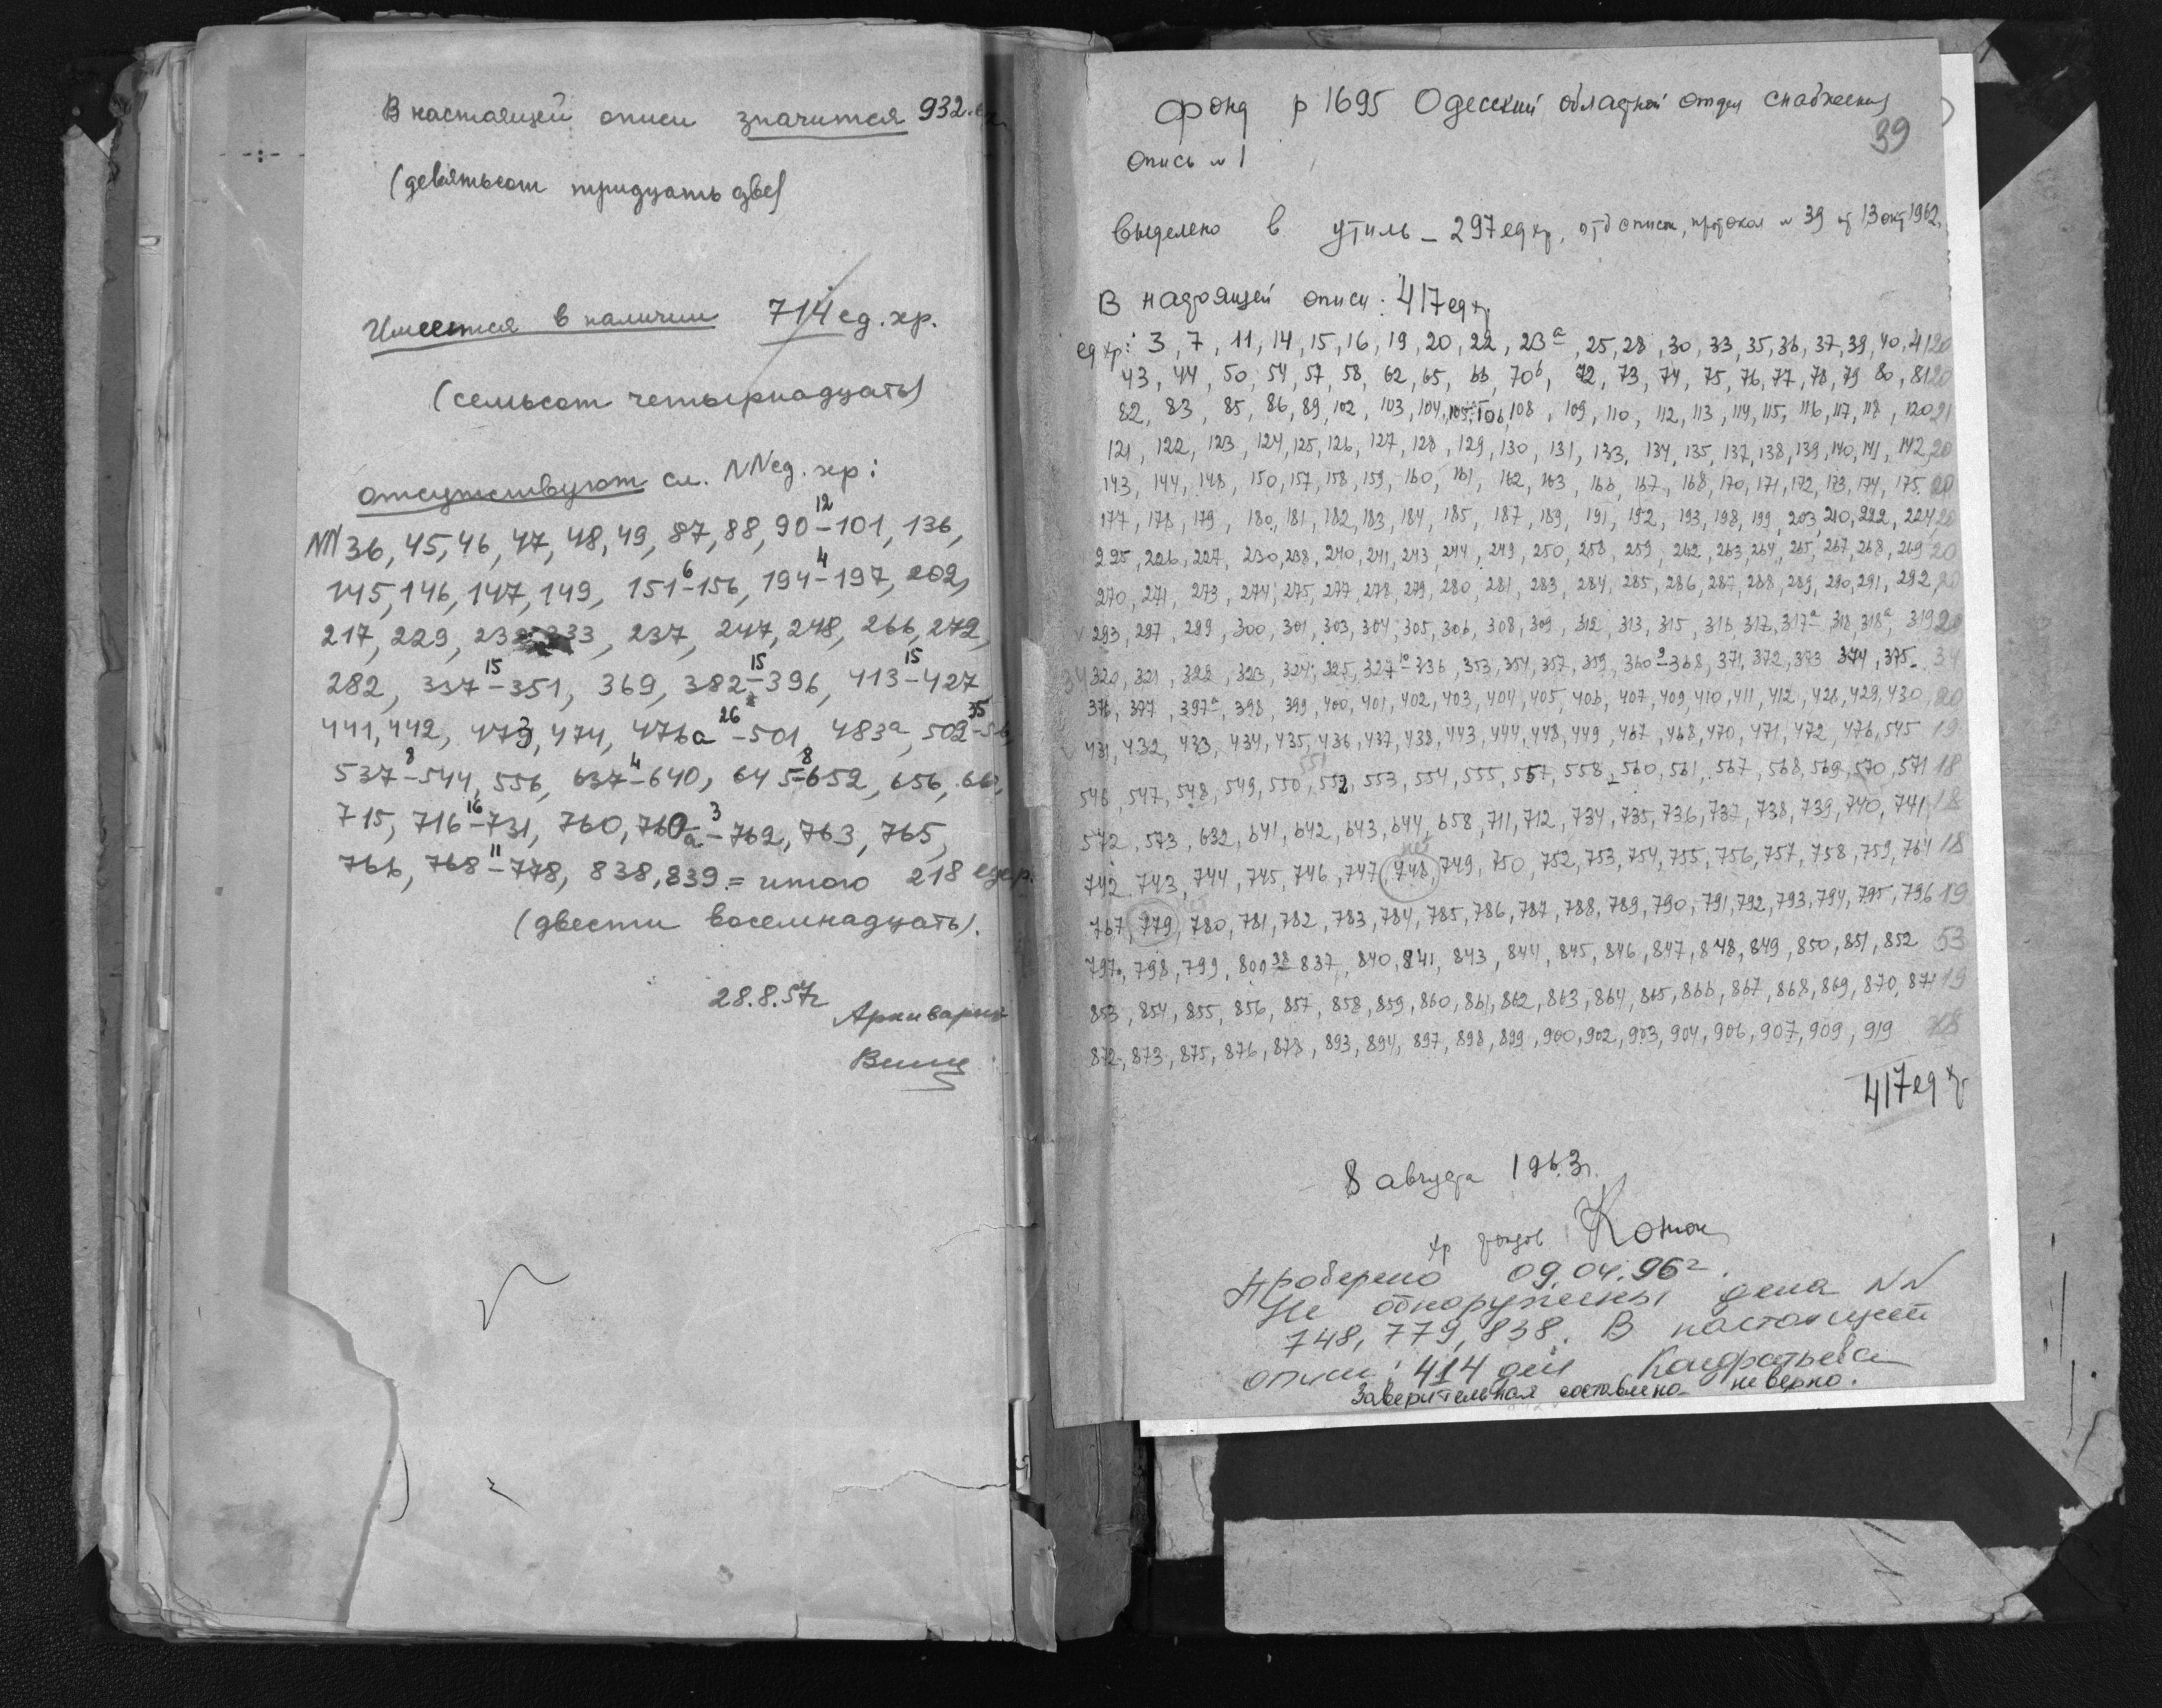 В настоящей описи значится 932 е
(девятьсот тридцать две)
Имеется в наличии 714 ед. хр.
(семьсот четырнадцать)
Отсутствуют сл. NN ед. хр:
NN 36, 45, 46, 47, 48, 49, 87, 88, 90 -12- 101, 136,
145, 146, 147, 149, 151 -6- 156, 194 -4- 197, 202,
217, 229, 233, 237, 247, 248, 266, 272,
282, 337 -15- 351, 369, 382 -15- 396, 413 -15- 427
441, 442, 473, 474, 476а -26- 501, 483а, 502 -35-
537 -8- 544, 556, 637 -4- 640, 645 -8- 652, 656,
715, 716 -16- 731, 760, 760а -3- 762, 763, 765,
766, 768 -11- 778, 838, 839 = итого 218 ед.хр.
(двести восемнадцать).
28.8.57г
Архивариус
Фонд р 1695 Одесский областной отдел снабжения
39
Опись N 1
Выделено в утиль - 297 ед хр, отд списки, протокол N 39 от 13 окт 1962.
В настоящей описи: 417 ед хр
ед хр: 3, 7, 11, 14, 15, 16, 19, 20, 22, 23а, 25, 28, 30, 33, 35, 36, 37, 39, 40, 41 20
43, 44, 50, 54, 57, 58, 62, 65, 66, 70б, 72, 73, 74, 75, 76, 77, 78, 79 80, 81 20
82, 83, 85, 86, 89, 102, 103, 104, 105, 106, 108, 109, 110, 112, 113, 114, 115, 116, 117, 118, 120 21
121, 122, 123, 124, 125, 126, 127, 128, 129, 130, 131, 133, 134, 135, 137, 138, 139, 140, 141, 142, 20
143, 144, 148, 150, 157, 158, 159, 160, 161, 162, 163, 166, 167, 168, 170, 171, 172, 173, 174, 175. 20
177, 178, 179, 180, 181, 182, 183, 184, 185, 187, 189, 191, 192, 193, 198, 199, 203, 210, 222, 224, 20
225, 226, 227, 230, 238, 240, 241, 243, 244, 249, 250, 258, 259, 262, 263, 264, 265, 267, 268, 269 20
270, 271, 273, 274, 275, 277, 278, 279, 280, 281, 283, 284, 285, 286, 287, 288, 289, 290, 291, 292, 20
√ 293, 297, 299, 300, 301, 303, 304, 305, 306, 308, 309, 312, 313, 315, 316, 317, 317а, 318, 318а, 319 20
34 320, 321, 322, 323, 324, 325, 327 -10- 336, 353, 354, 357, 359, 360 -9- 368, 371, 372, 373 374, 375. 34
376, 377, 397а, 398, 399, 400, 401, 402, 403, 404, 405, 406, 407, 409, 410, 411, 412, 428, 429, 430, 20
√ 431, 432, 433, 434, 435, 436, 437, 438, 443, 444, 448, 449, 467, 468, 470, 471, 472, 476, 545 19
551
546, 547, 548, 549, 550, 552, 553, 554, 555, 557, 558 - 560, 561, 567, 568, 569, 570, 571 18
572, 573, 632, 641, 642, 643, 644, 658, 711, 712, 734, 735, 736, 737, 738, 739, 740, 741, 18
742 743, 744, 745, 746, 747, 748, 749, 750, 752, 753, 754, 755, 756, 757, 758, 759, 764 18
767, 779, 780, 781, 782, 783, 784, 785, 786, 787, 788, 789, 790, 791, 792, 793, 794, 795, 796 19
797, 798, 799, 800 -38- 837, 840, 841, 843, 844, 845, 846, 847, 848, 849, 850, 851, 852 53
853, 854, 855, 856, 857, 858, 859, 860, 861, 862, 863, 864, 865, 866, 867, 868, 869, 870, 871 19
872, 873, 875, 876, 878, 893, 894, 897, 898, 899, 900, 902, 903, 904, 906, 907, 909, 919 18
417 ед хр
8 августа 1963г.
хр фондов
Проверено 09.04.96г.
Не обнаружены дела NN
748, 779, 838. В настоящей
описи: 414 дел Кондратьева
Заверительная составлена неверно.